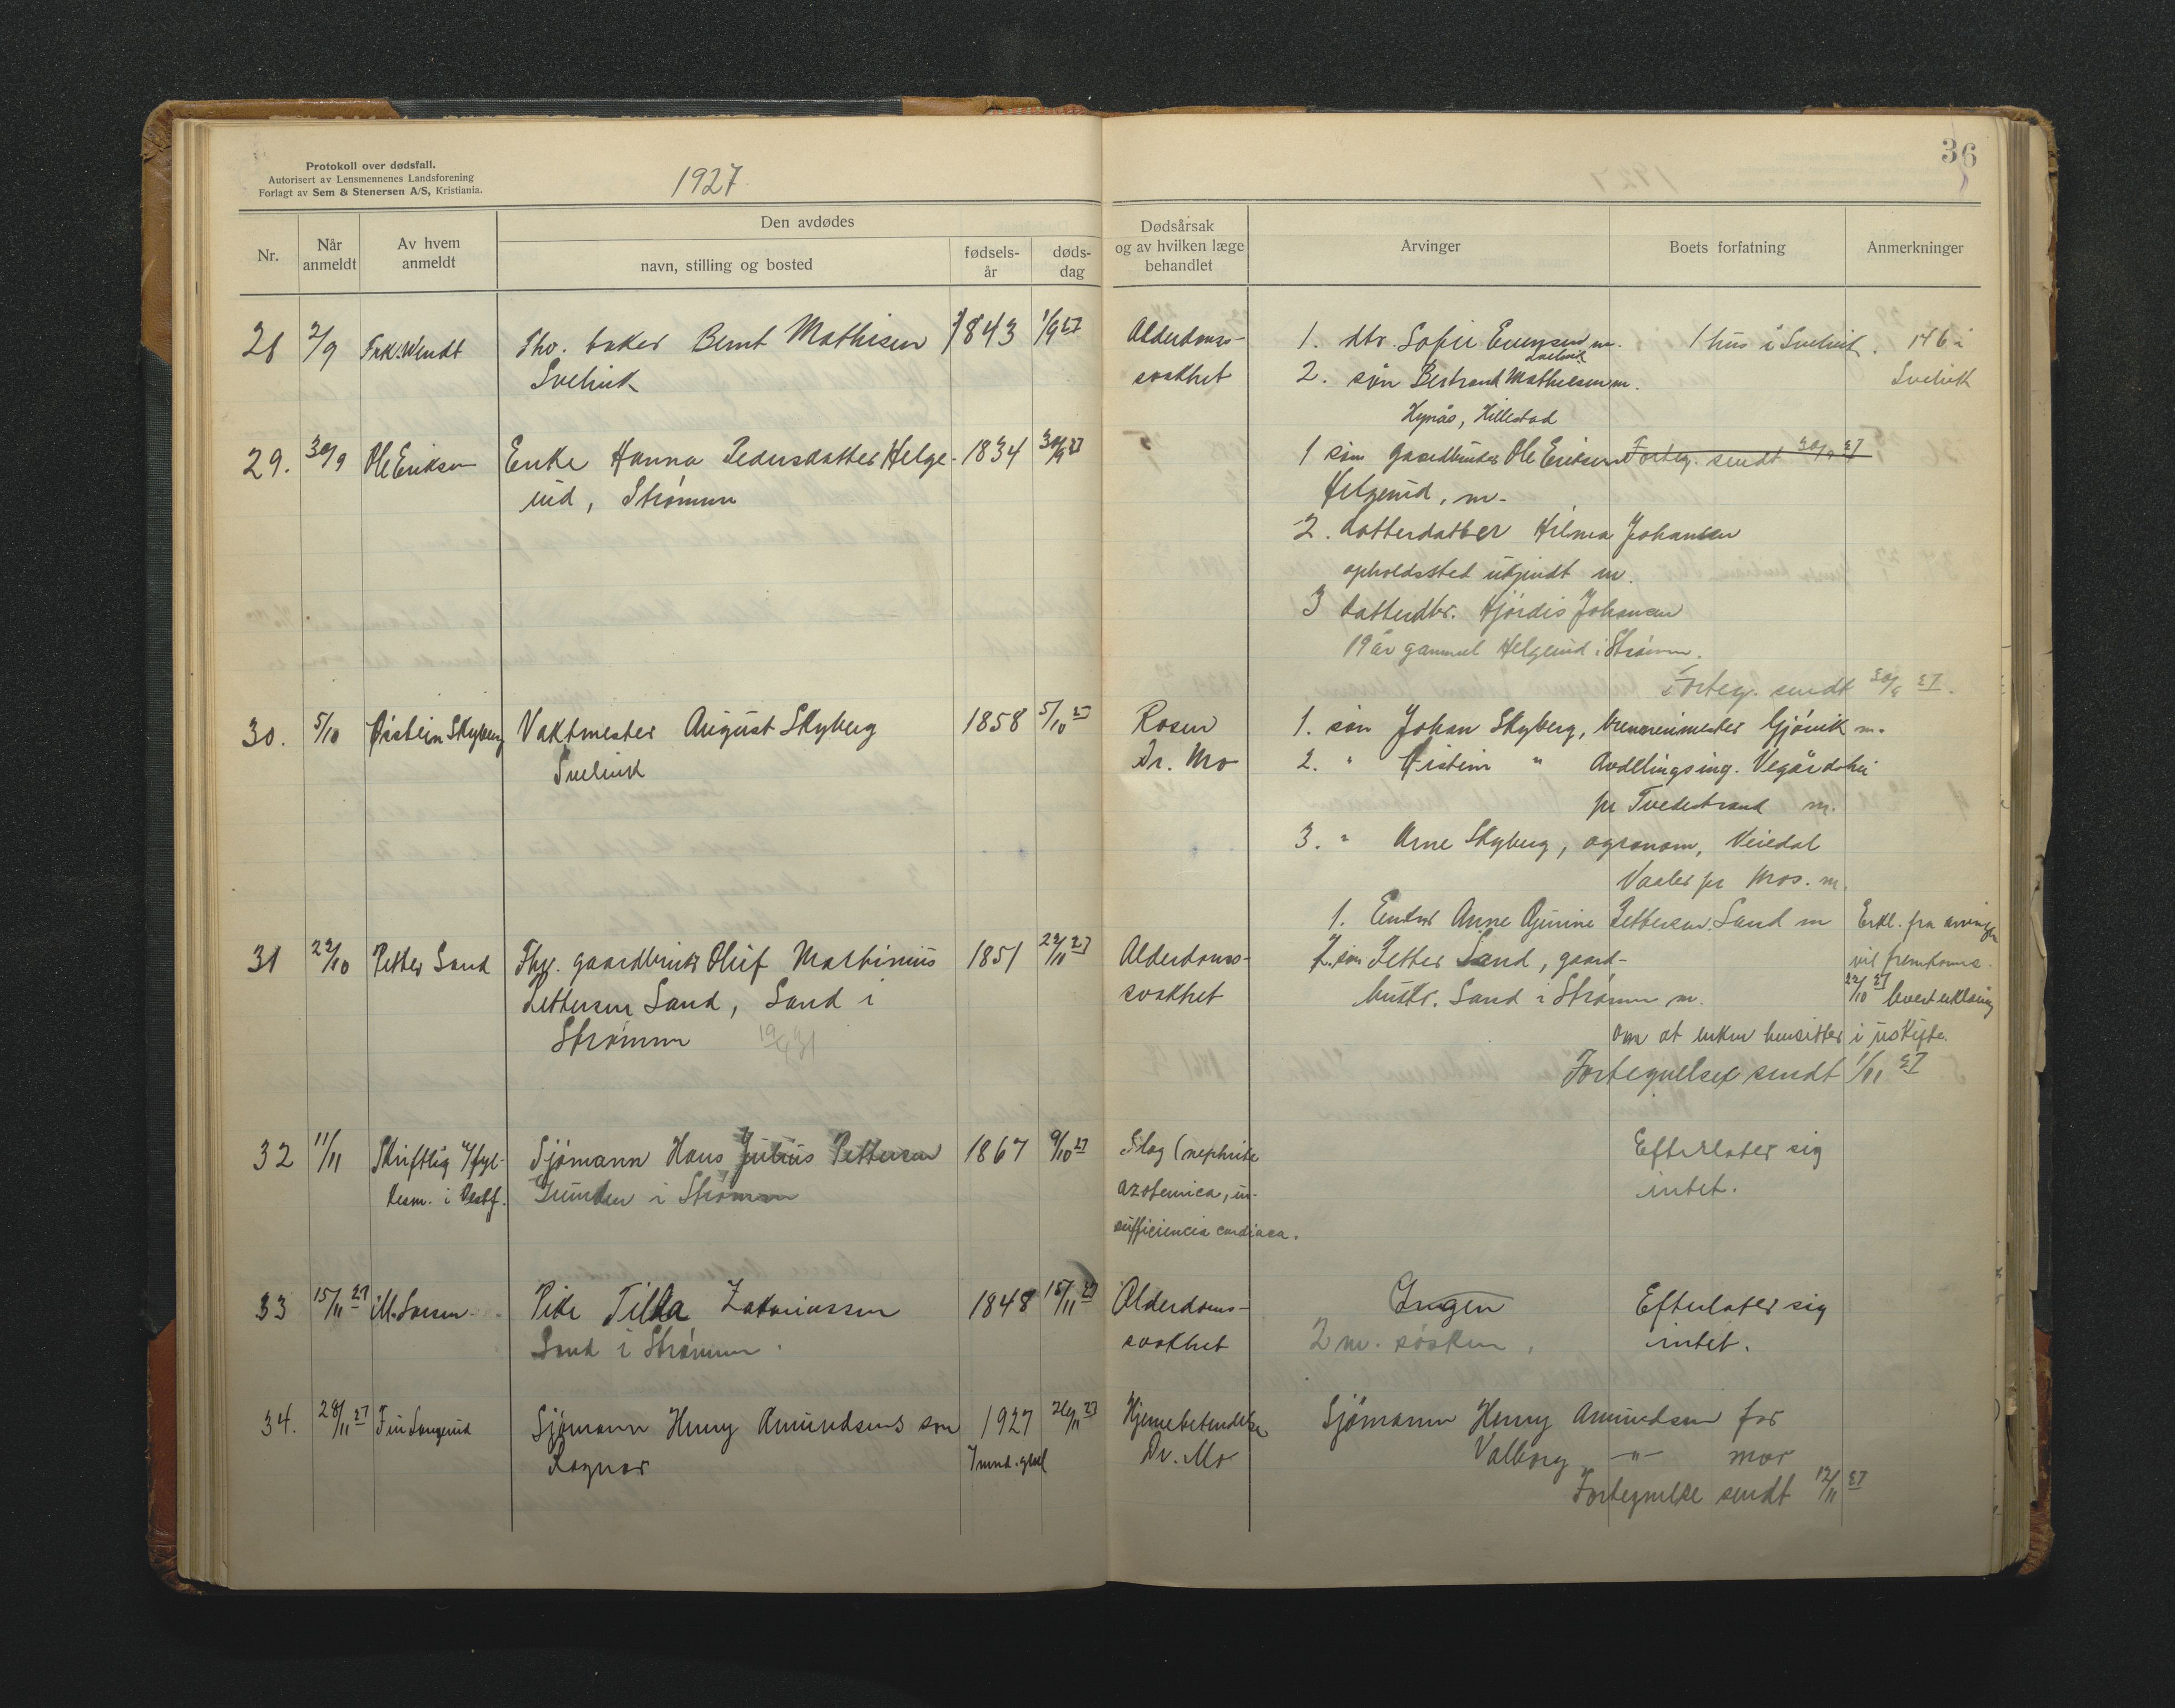 Protokoll over dødsfall.
Autorisert av Lensmennenes Landsforening
Forlagt av Sem & Stenersen A/S, Kristiania.
1927
36
Nr.
Når anmeldt
Av hvem anmeldt
Den avdødes
navn, stilling og bosted
fødsels-år
døds-dag
Dødsårsak og av hvilken læge behandlet
Arvinger
Boets forfatning
Anmerkninger
28 2/9 Frk. Wendt Fhv. baker Bernt Mathisen 1843 1/9 27 Alderdoms- 1. dtr. Sofie Evensen m. 1 hus i Svelvik. 146 i
Svelvik svakhet Svelvik
2. søn Bertrand Mathisen m. Svelvik
Hynås, Hillestad
29. 30/9 Ole Eriksen Enke Hanna Pedersdatter Helge- 1834 30/9 27 1 søn gaardbruker Ole Eriksen Forteg. sendt 30/9 27
rud, Strømm Helgerud, m.
2. datterdatter Hilma Johansen
opholdssted ukjendt m.
3 datterdtr. Hjørdis Johansen
19 år gammel Helgerud i Strømm.
Forteg. sendt 30/9 27.
30. 5/10 Øistein Skyberg Vaktmester August Skyberg 1858 5/10 27 Rosen 1. søn Johan Skyberg, brennerimester Gjøvik m.
Svelvik Dr. Mo 2. " Øistein " Avdelingsing. Vegårdshei
pr Tvedestrand m.
3. " Arne Skyberg, agronom, Veiedal
Vaaler pr Mos. m.
1. Enken Anne Pettersen Sand m Erkl. fra arvingen
31 22/10 Petter Sand Fhv. gaardbruker Oluf Marthinius 1851 22/10 27 Alderdoms- 2. søn Petter Sand, gaard- vil fremkomme.
Pettersen Sand, Sand i svakhet bruker. Sand i Strømm m. 22/10 27 levert erklæring
Strømm 19/4 31 om at enken hensitter i uskifte.
Fortegnelse sendt 1/11 27
32 11/11 Skriftlig v/fyl- Sjømann Hans Julius Pettersen 1867 9/10 27 Slag (nephrite Efterlater sig
kesm. i Vestf. Grunden i Strømm azotemica, in- intet.
sufficiencia cardiaca.
33 15/11 27 M. Svesen Pike Tilla Zakariassen 1848 15/11 27 Alderdoms- Ingen Efterlater sig
Sand i Strømm. svakhet 2 m. søsken, intet.
34. 28/11 27 Sjømann Henry Amundsens søn 1927 26/11 27 Hjernebetendelse Sjømann Henry Amundsen far
Ragnar 7 mnd. gml Dr. Mo Valborg -"- mor
Fortegnelse sendt 12/11 27